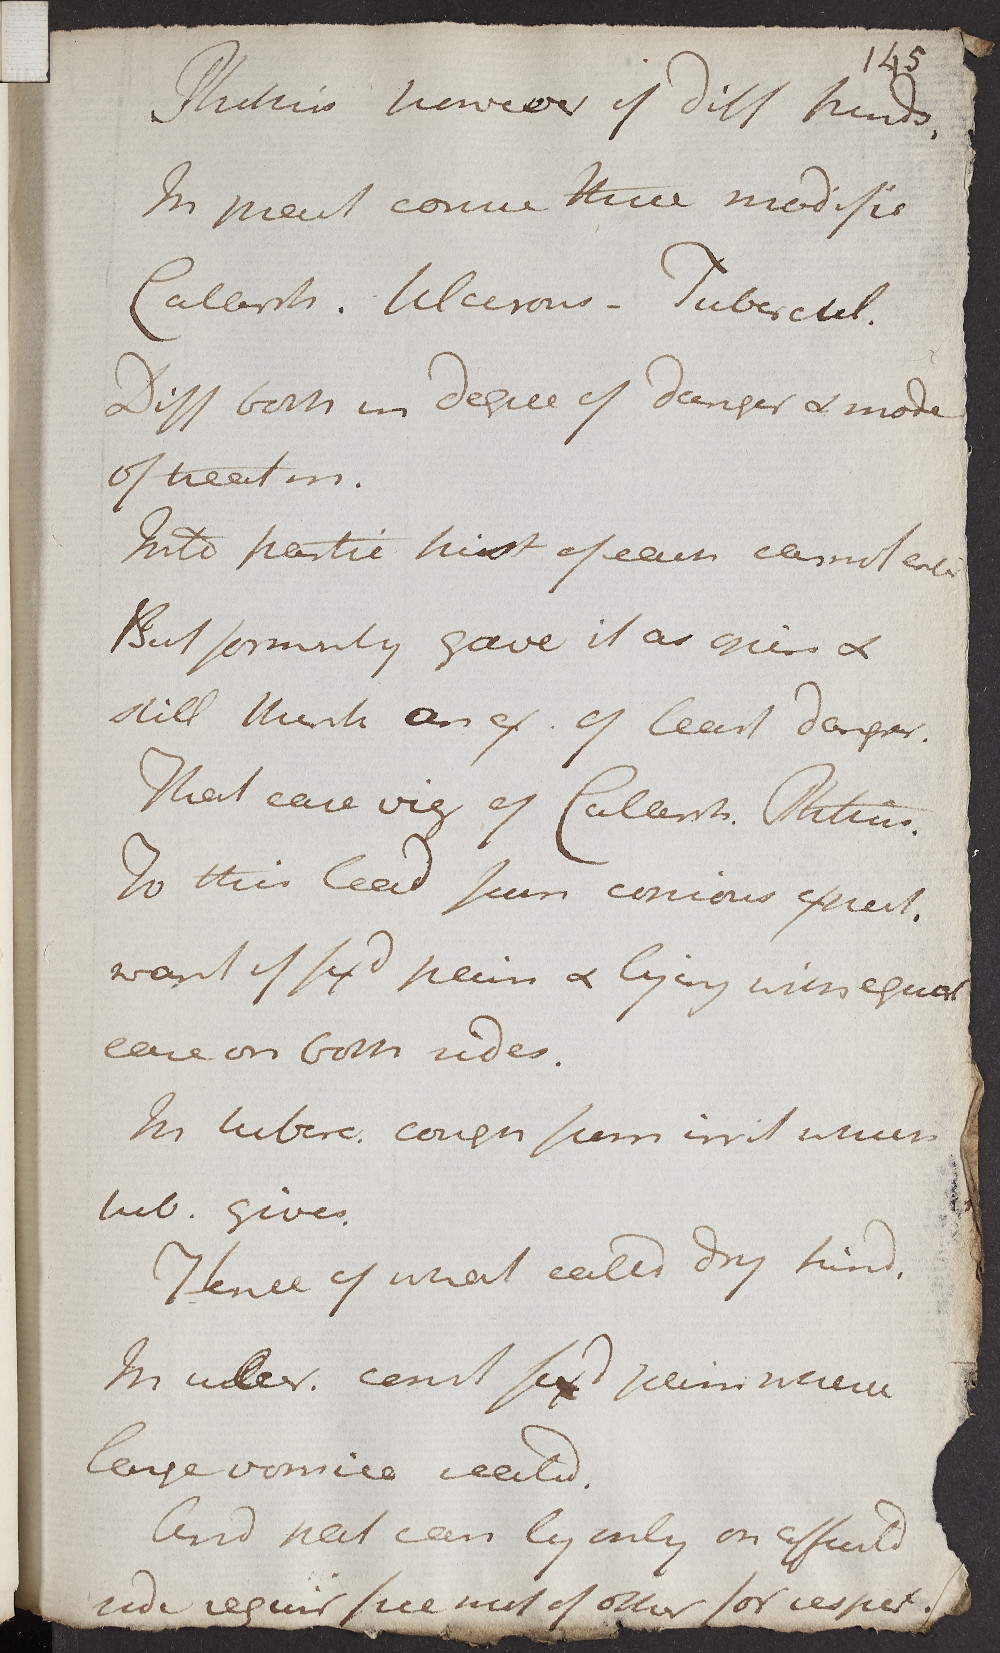 145
Phthisis however of diff kinds.
In pract comm three modific
Catarrh. Ulcerous - Tubercul.
Diff both in degree of danger & mode
of treatm.
Into partic hist of each cannot enter
But formerly gave it as opin &
still think an ex. of least danger.
That case viz of Catarrh. Phthisis.
To this lead from copious expect.
want of fix'd pain & lying with equal
ease on both sides.
In tuberc. cough from irrit which
tub. gives.
Hence of what called dry kind.
In ulcer. const fix'd pain where
large vomica seated.
And pat can ly only on affected
side requir free mot of other for respir.